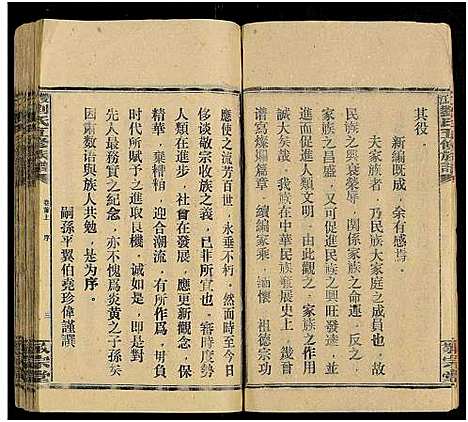 其役。
新編既成，余有感焉。
夫家族者，乃民族大家庭之成員也，故
民族之興衰榮辱，關係家族之命運，反之，
家族之昌盛，又可以民族之興旺發達，並
進而促進人類之進步，由此觀之，家族之作用
誠大矣哉，我族在中華民族發展史上，幾曾
譜寫燦爛篇章，續編家乘，緬懷祖德宗功
應使之流芳百世，永垂不朽，然而時至今日
侈谈敬宗收族，已非所宜也，審時度勢
人類在進步，社會在發展，更新觀念，保
精華，棄糟粕，迎合潮流，有所作爲，勇負
时代所賦予之進取良機，誠如是，即是對
先人最文明之紀念，亦不愧爲炎黄之子孫矣
因爲数语與族人共勉，是为序。
嗣孫平翼伯堯珍偉謹譔
卷首上 序 三
敦宗堂